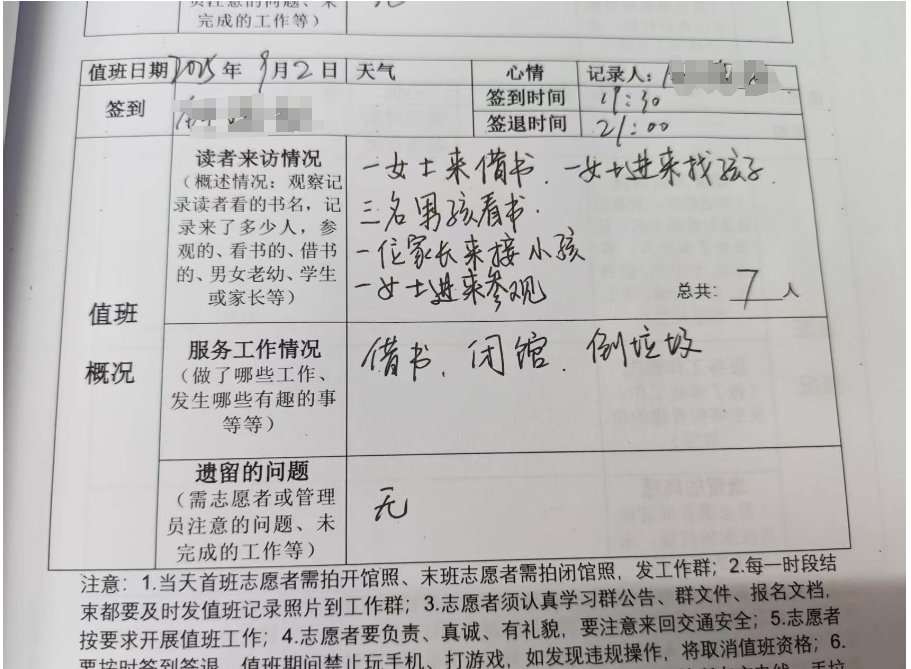 员注意的问题、未
完成的工作等）
值班日期 2025年 9月2日 天气 心情 记录人：
签到 签到时间 19:30
签退时间 21:00
值班
概况
读者来访情况
（概述情况：观察记
录读者看的书名，记
录来了多少人，参
观的、看书的、借书
的、男女老幼、学生
或家长等）
一女士来借书、一女士进来找孩子.
三名男孩看书.
一位家长来接小孩
一女士进来参观
总共：7人
服务工作情况
（做了哪些工作、
发生哪些有趣的事
等等）
借书、闭馆、倒垃圾
遗留的问题
（需志愿者或管理
员注意的问题、未
完成的工作等）
无
注意：1.当天首班志愿者需拍开馆照、末班志愿者需拍闭馆照，发工作群；2.每一时段结
束都要及时发值班记录照片到工作群；3.志愿者须认真学习群公告、群文件、报名文档，
按要求开展值班工作；4.志愿者要负责、真诚、有礼貌，要注意来回交通安全；5.志愿者
要按时签到签退，值班期间禁止玩手机、打游戏，如发现违规操作，将取消值班资格；6.